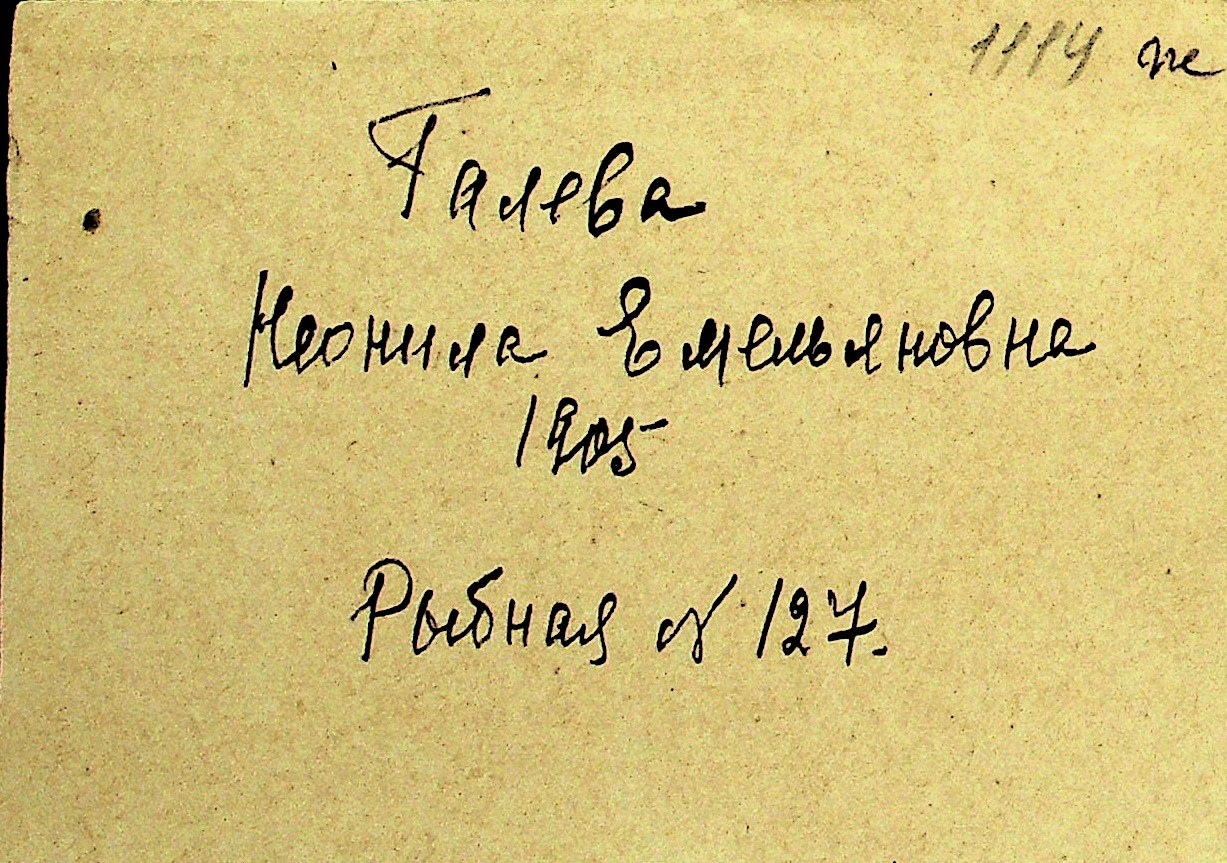 1114 же
Галева
Неонила Емельяновна
1905
Рыбная № 127.